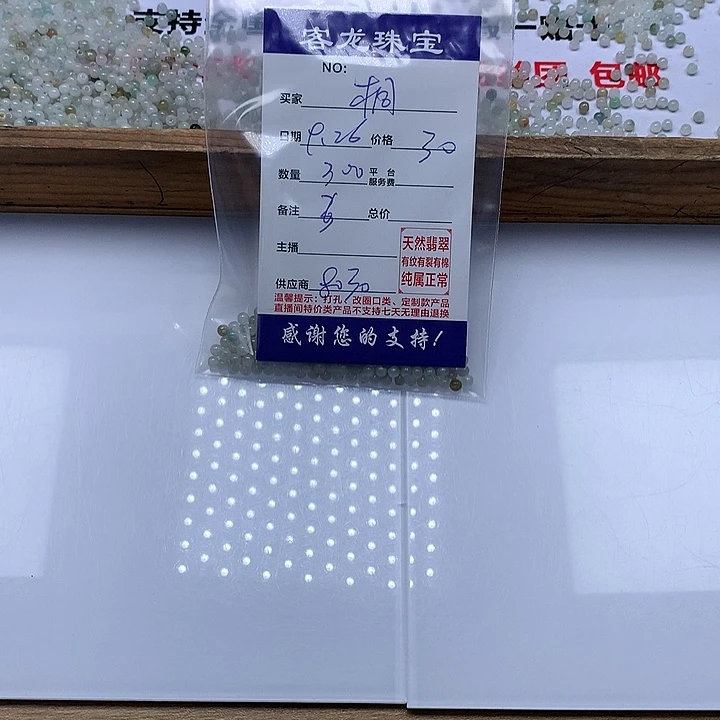 支持
包邮
客龙珠宝
NO:
买家 桐
日期 9.26 价格 30
数量 300 平台服务费
备注 总价
主播
天然翡翠
有纹有裂有棉
纯属正常
供应商
温馨提示：打孔、改圈口类、定制款产品
直播间特价类产品不支持七天无理由退换
感谢您的支持！